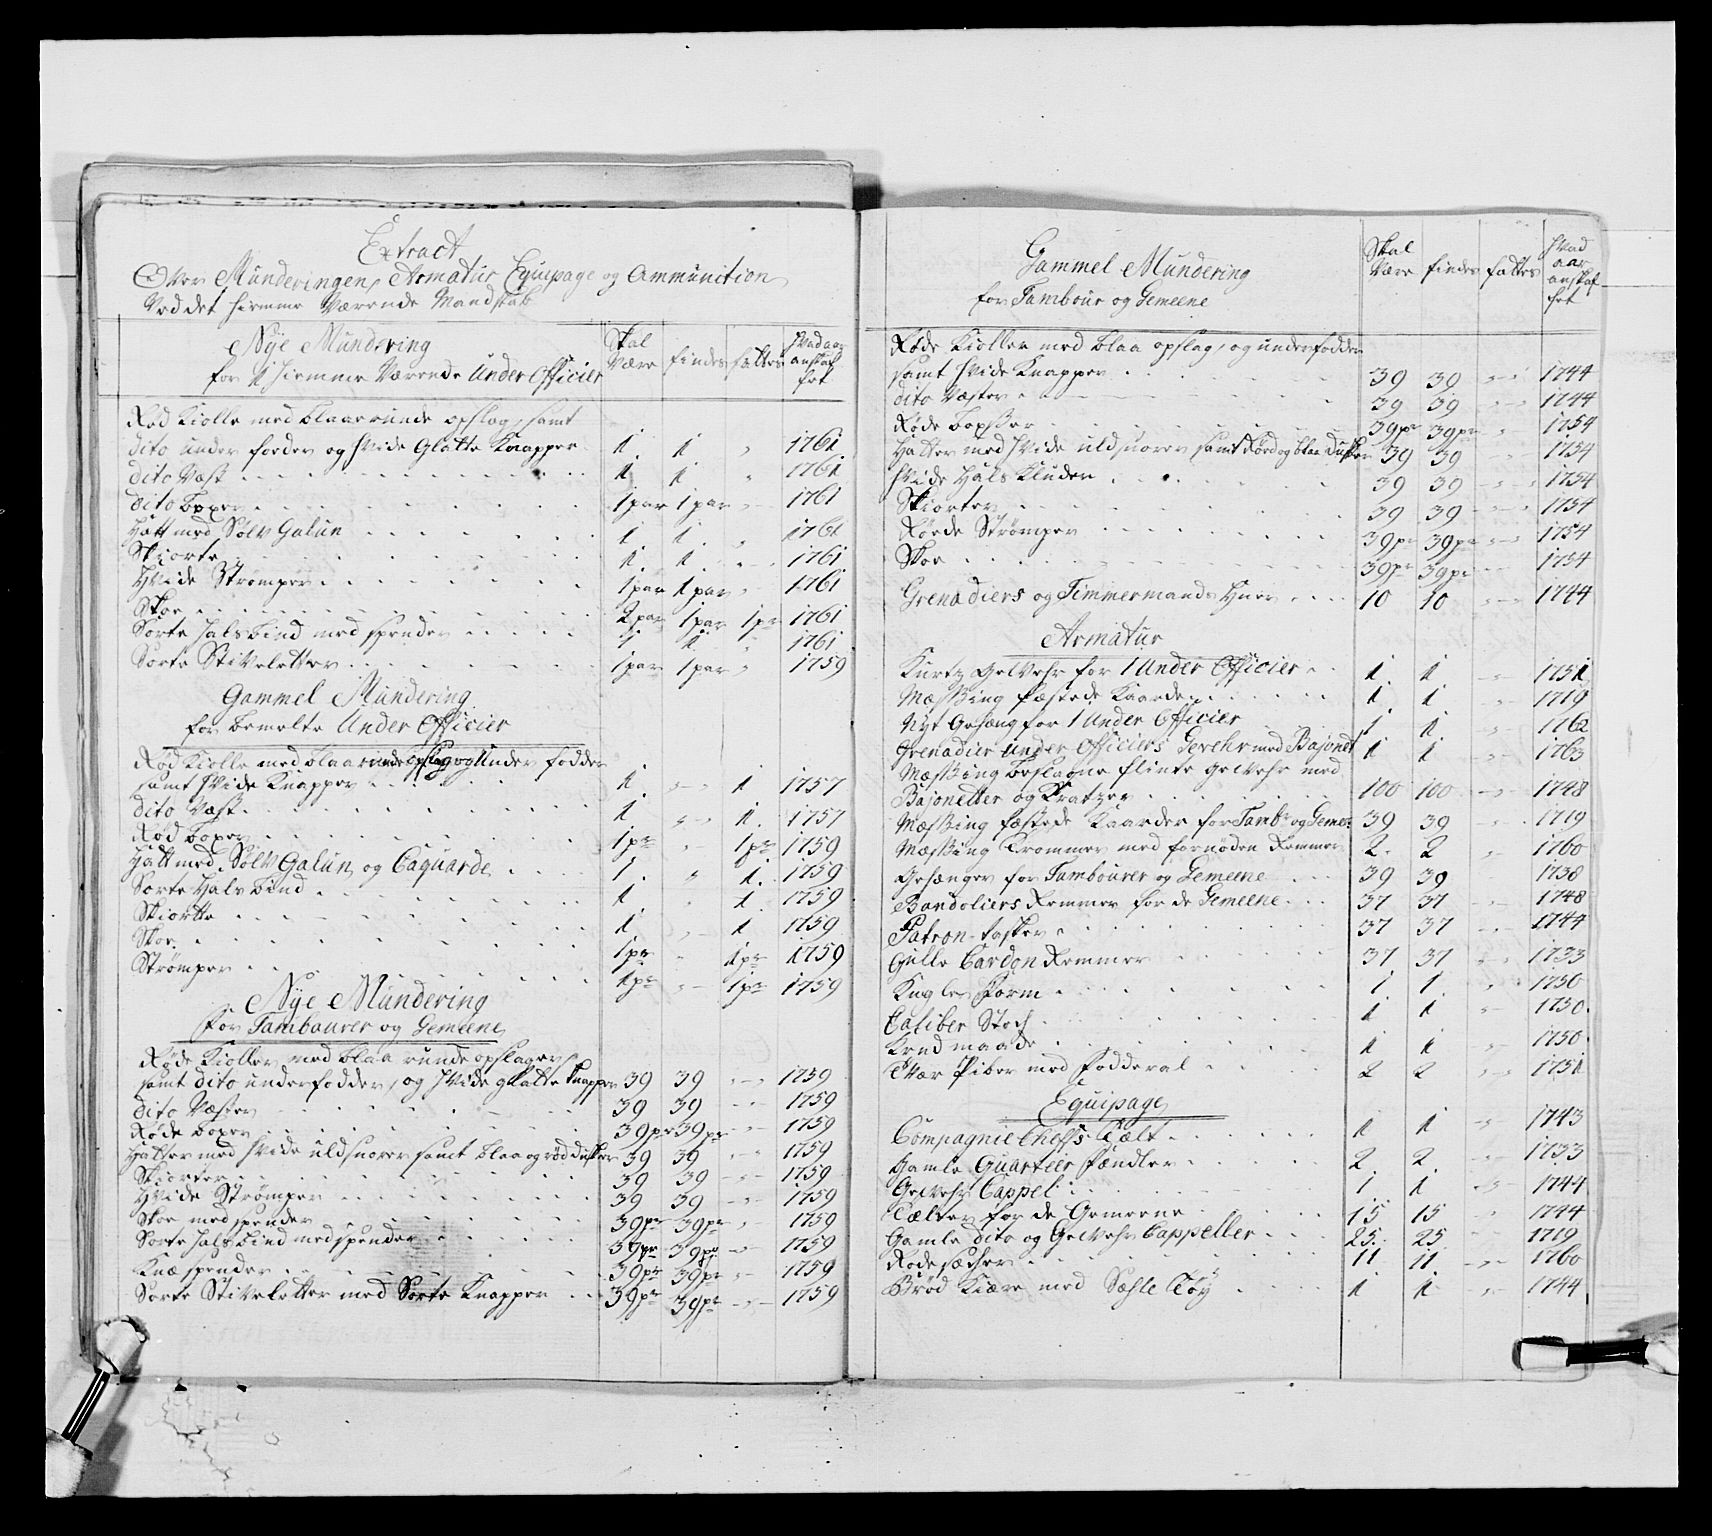 Extract
Over Munderingen, Armatur, Equipage og Ammunition
Ved det hiemme Værende Mandskab
Nye Mundering
for 1 hiemme Værende Under Officier
Skal Være findes fattes Hvad aar anskaffet
Rød Kiolle med blaae runde opslag, samt
dito under foeder og hvide Glatte Knapper 1. 1 " 1761
dito Væst 1 1 " 1761
dito Boxer 1 par 1 par " 1761
Hatt med Sølv Galun 1 1. " 1761
Skiorte 1. 1. " 1761
Hvide Strømper 1 par 1 par " 1761
Skoe 2 par 1 par 1 pr 1761
Sorte Halsbind med spender 1 1. " 1761
Sorte Stiveletter 1 par 1 par " 1759
Gammel Mundering
for bemelte Under Officier
Rød Kiolle med blaae runde opslag og Under foder
samt hvide Knapper 1. " 1 1757
dito Væst 1. " 1. 1757
Rød Boxer 1 pr " 1 pr 1759
Hatt med Sølv Galun og Caquarde 1. " 1. 1759
Sorte Hals bind 1. " 1. 1759
Skiortte 1. " 1 1759
Skoe 1 pr " 1 pr 1759
Strømper 1 pr " 1 pr 1759
Nye Mundering
for Tambourer og Gemeene
Røde Kioller med blaa runde opslager
samt dito underfodder, og hvide glatte Knapper 39 39 " 1759
dito Væster 39 39 " 1759
Røde boxer 39 pr 39 pr " 1759
Hatter med hvide uldsnorer samt blaa og rød dusker 39 39 " 1759
Skiorter 39 39 " 1759
Hvide Strømper 39 39 " 1759
Skoe med spender 39 pr 39 pr " 1759
Sorte Halsbind med spender 39 pr 39 pr " 1759
Knæ spender 39 pr 39 pr " 1759
Sorte Stiveletter med Sorte Knapper 39 pr 39 pr " 1759
Gammel Mundering
for Tambour og Gemeene
Skal Være findes fattes Hvad aar anskaffet
Røde Kioller med blaa opslag, og underfodder
samt hvide Knapper 39 39 " 1744
dito Væster 39 39 " 1744
Røde boxser 39 pr 39 pr " 1754
Hatter med hvide uldsnorer samt Rød og blaa dusker 39 39 " 1754
Hvide Hals Kluder 39 39 " 1754
Skiorter 39 39 " 1754
Røede Strømper 39 pr 39 pr " 1754
Skoe 39 pr 39 pr " 1754
Grenadiers og Timmermands Huer 10 10 " 1744
Armatur
Kurtz Gevehr for 1 Under Officier 1. 1. " 1751
Mæssing fæstede Kaarder 1 1 " 1719
Nyt Gehæng for 1 Under Officier 1. 1. " 1762
Grenadier Under Officiers Gevehr med Bajonet 1 1 " 1763
Mæssing beslagne flinte Gevehr med
Bajonetter og Kratzer 100 100 " 1748
Mæssing fæstede Kaarder for Tambr og Gemeene 39 39 " 1719
Mæssing Trommer med fornøden Remmer 2. 2 " 1760
Gehænger for Tambourer og Gemeene 39 39 1738
Bandoliers Remmer for de Gemeene 37 37 " 1748
Patron-tasker 37 37 " 1744
Gulle Cardon Remmer 37 37 " 1733
Kugle Form 1 1. " 1750
Caliber Stoch 1 1 " 1750.
Krud maade 1 1 " 1750.
Tvær Piber med Fodderal 2 2 " 1751
Equipage
Compagnie Chefs Tælt 1 1 " 1743
Gamle Quarteer Fændler 2. 2. " 1733
Gevehr Cappel 1 1 " 1744
Tælter for de Gemeene 15 15 " 1744
Gamle dito og Gevehr Cappeller 25. 25 " 1719
Rode sæcher 11 11 " 1760
Brød Kiære med Sæhle Tøy 1 1 " 1744